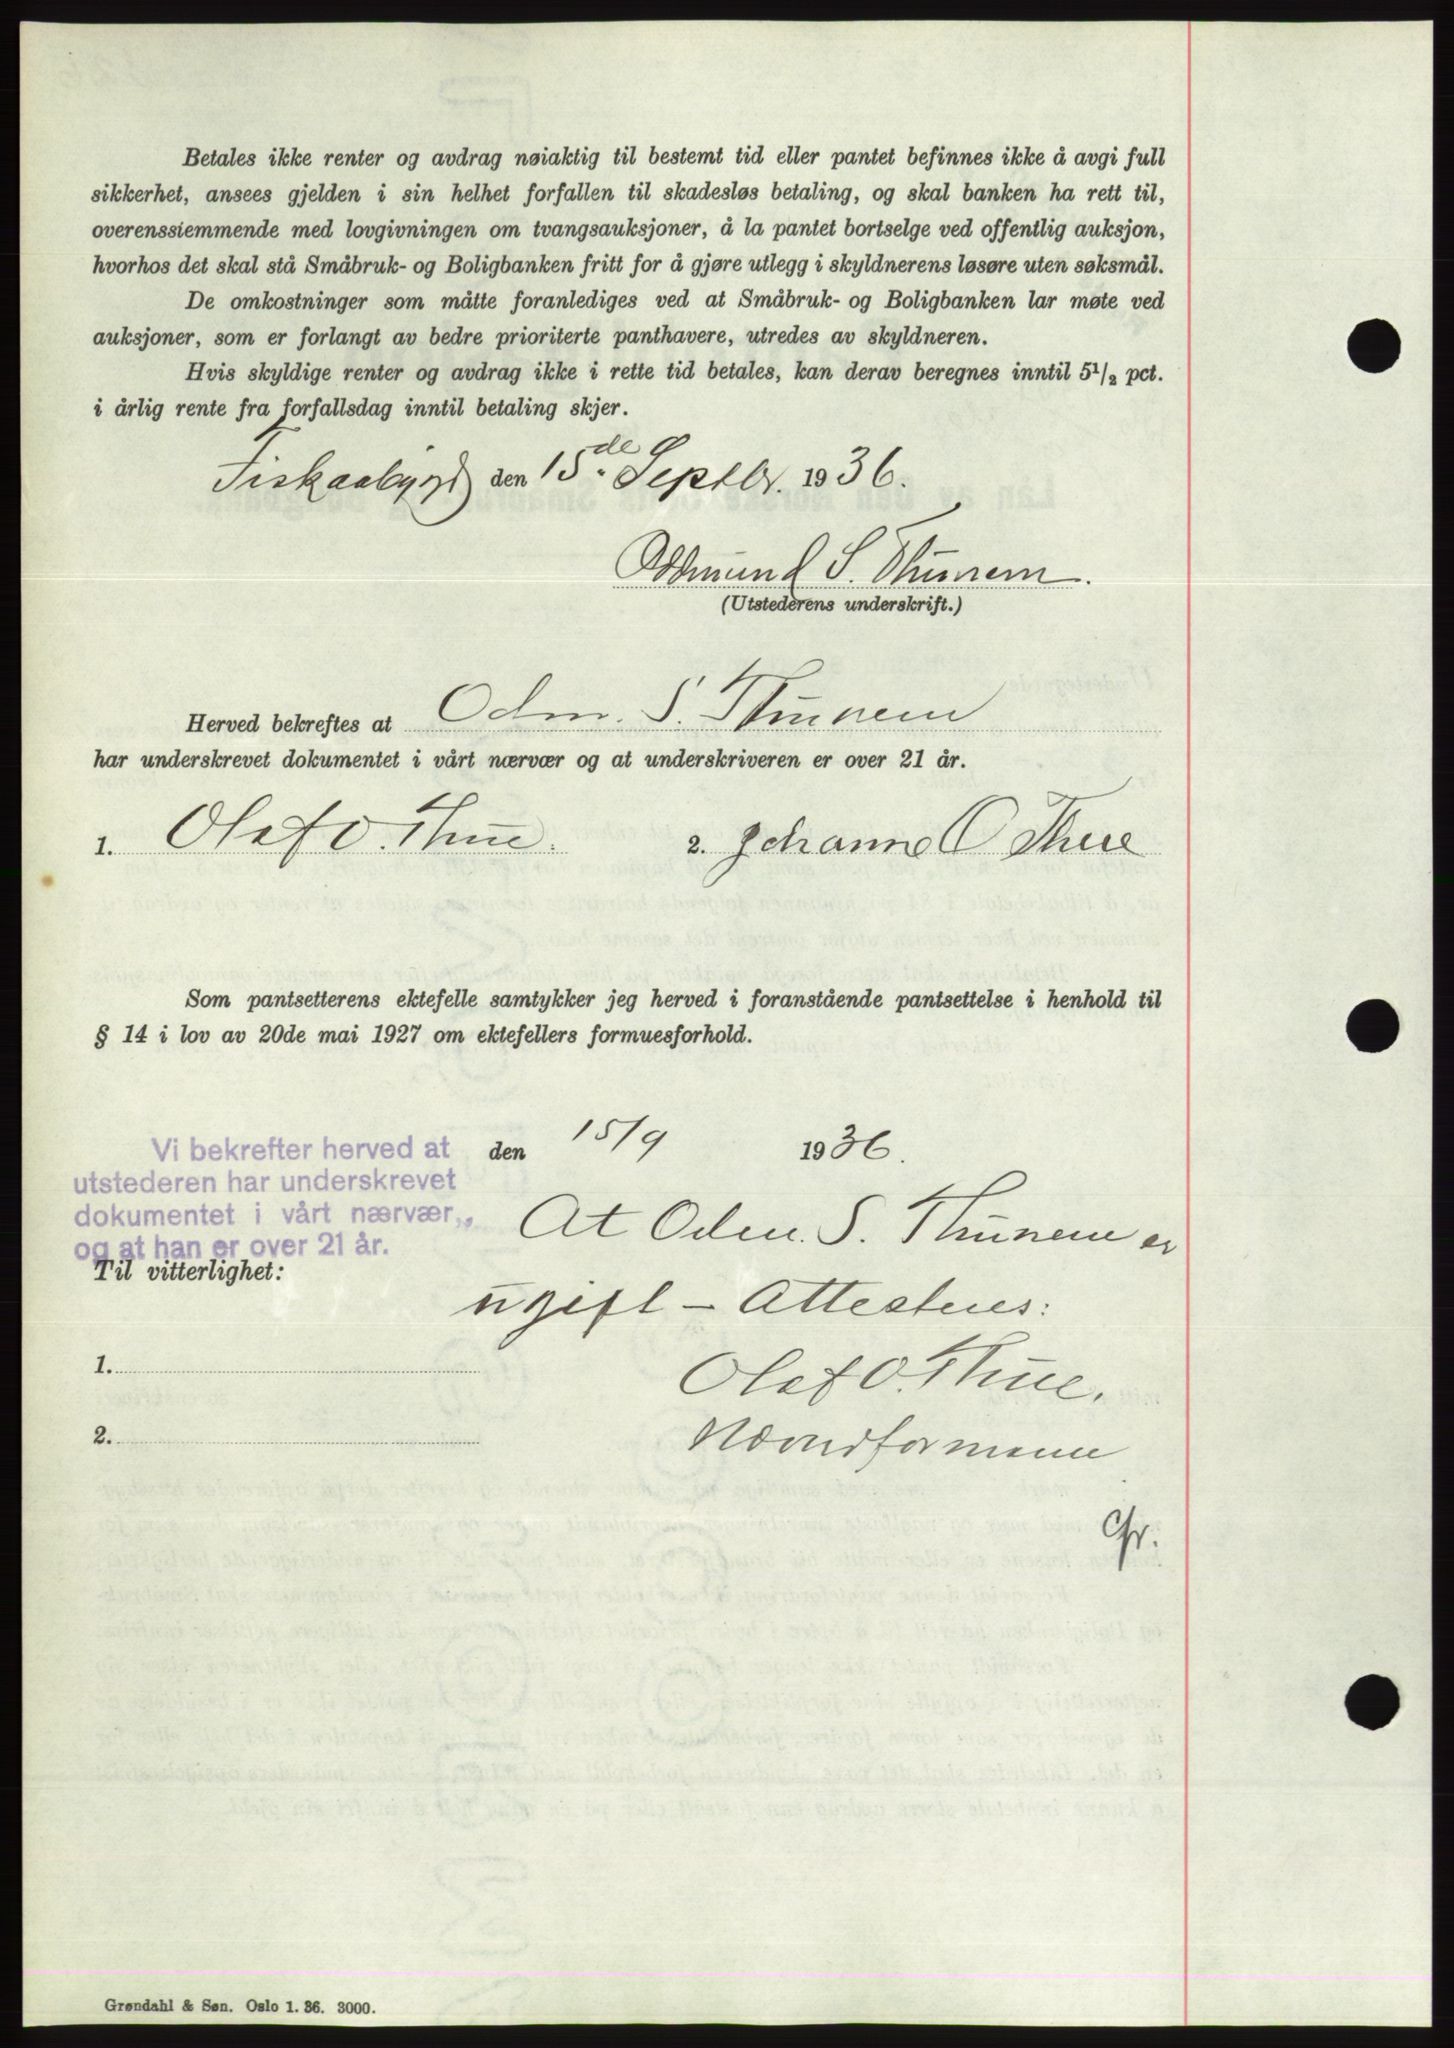 Betales ikke renter og avdrag nøiaktig til bestemt tid eller pantet befinnes ikke å avgi full
sikkerhet, ansees gjelden i sin helhet forfallen til skadesløs betaling, og skal banken ha rett til,
overenssiemmende med lovgivningen om tvangsauksjoner, å la pantet bortselge ved offentlig auksjon,
hvorhos det skal stå Småbruk- og Boligbanken fritt for å gjøre utlegg i skyldnerens løsøre uten søksmål.
De omkostninger som måtte foranlediges ved at Småbruk- og Boligbanken lar møte ved
auksjoner, som er forlangt av bedre prioriterte panthavere, utredes av skyldneren.
Hvis skyldige renter og avdrag ikke i rette tid betales, kan derav beregnes inntil 5 1/2 pct.
i årlig rente fra forfallsdag inntil betaling skjer.
Fiskaabygd den 15de Septbr. 1936.
Oddmund S. Thunem.
(Utstederens underskrift.)
Herved bekreftes at Odm. S. Thunem
har underskrevet dokumentet i vårt nærvær og at underskriveren er over 21 år.
1. Olaf O. Thue. 2. Johanne O Thue
Som pantsetterens ektefelle samtykker jeg herved i foranstående pantsettelse i henhold til
§ 14 i lov av 20de mai 1927 om ektefellers formuesforhold.
den 15/9 1936.
Vi bekrefter herved at
utstederen har underskrevet
dokumentet i vårt nærvær,
og at han er over 21 år.
Til vitterlighet:
1.
2.
At Odm. S. Thunem er
ugift – Attesteres:
Olaf O. Thue.
Nævndformann
Gr.
Grøndahl & Søn. Oslo 1. 36. 3000.